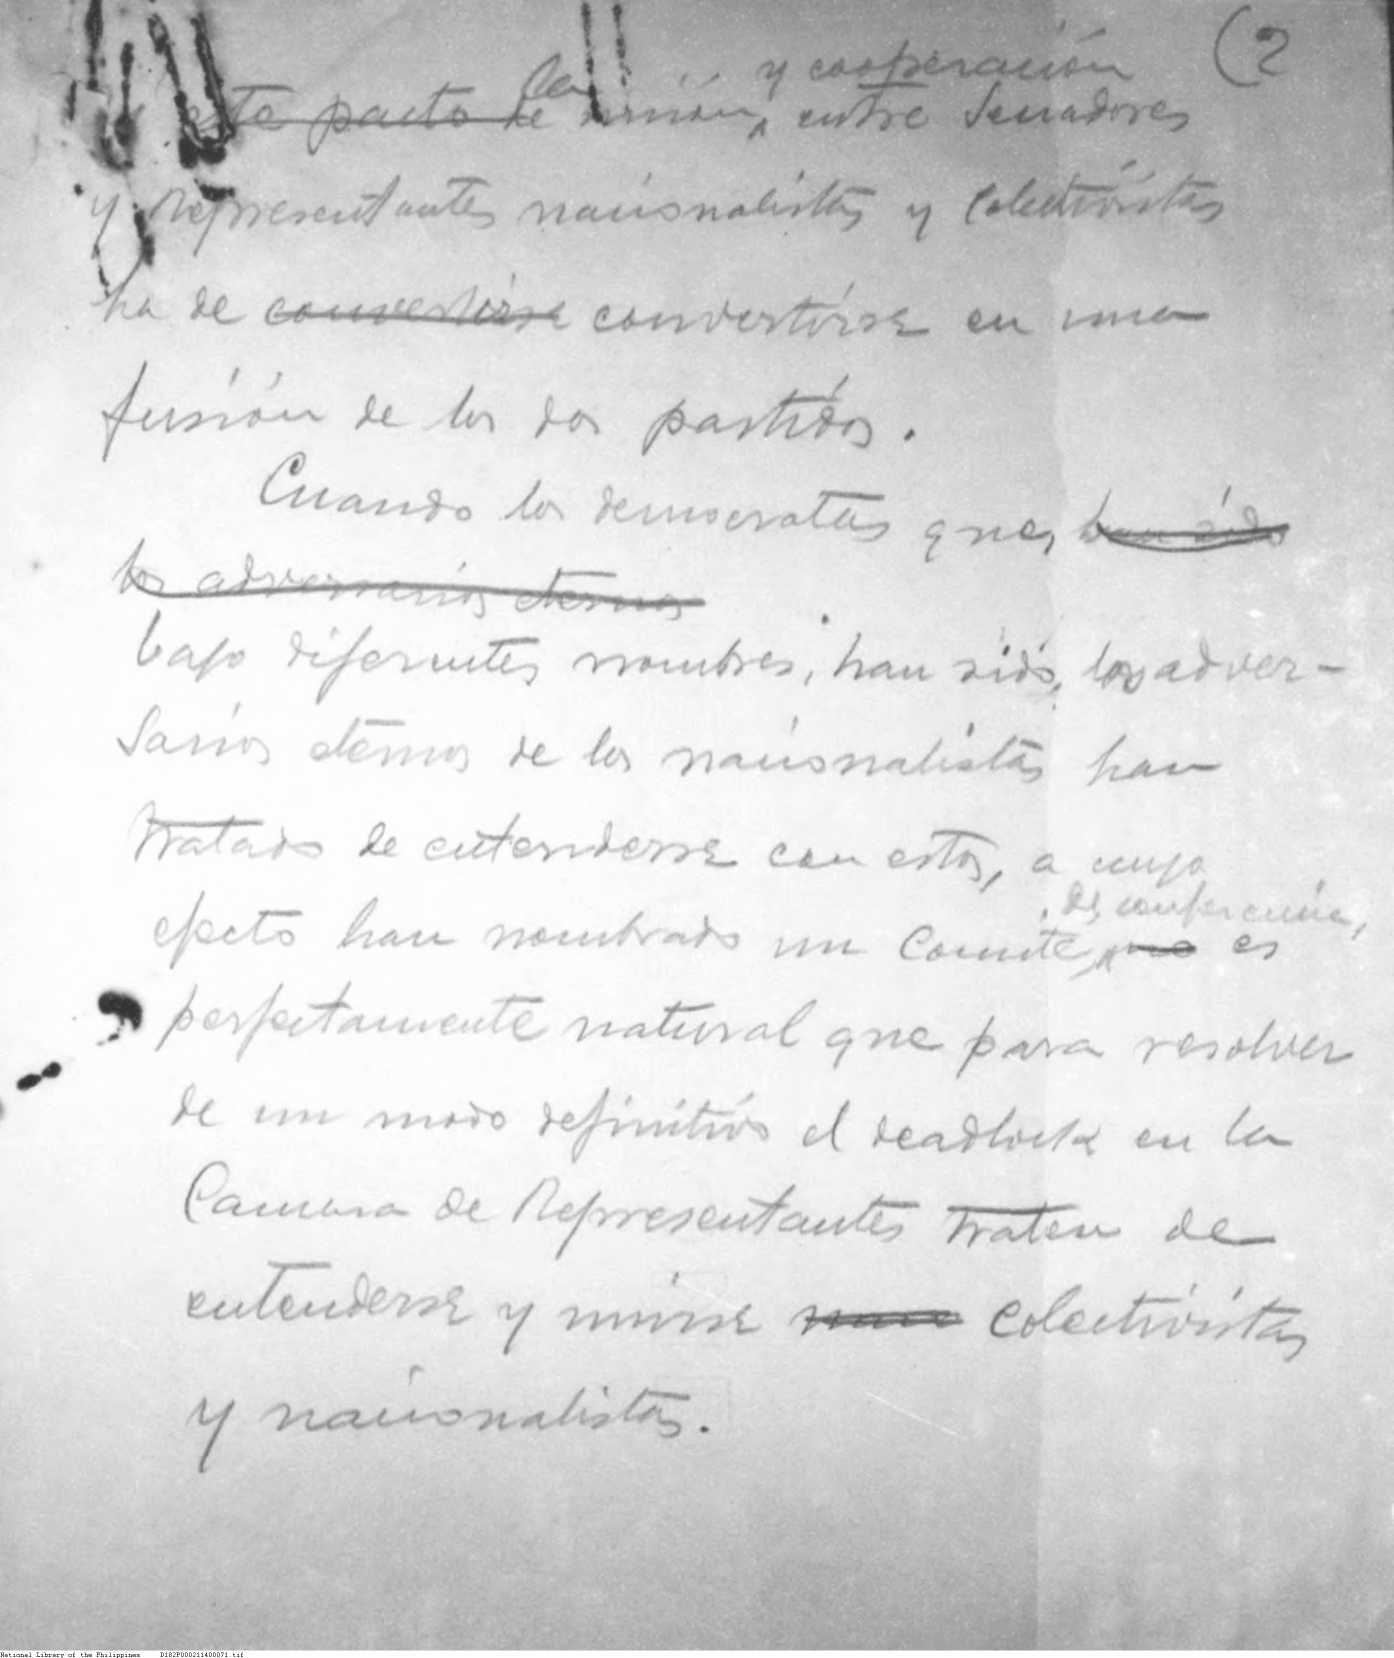 (2
la y cooperación
este pacto de unión, entre Senadores
y Representantes nacionalistas y Colectivistas
ha de convertirse convertirse en una
fusión de los dos partidos.
Cuando los democratas que, han sido
los adversarios eternos
bajo diferentes nombres, han sido, los adver-
sarios eternos de los nacionalistas han
tratado de entenderse con estos, a cuyo
de conferencia,
efecto han nombrado un Comite, no es
perfectamente natural que para resolver
de un modo definitivo el deadlock en la
Camara de Representantes traten de
entenderse y unirse colectivistas
y nacionalistas.
National Library of the Philippines D182P000211400071.tif